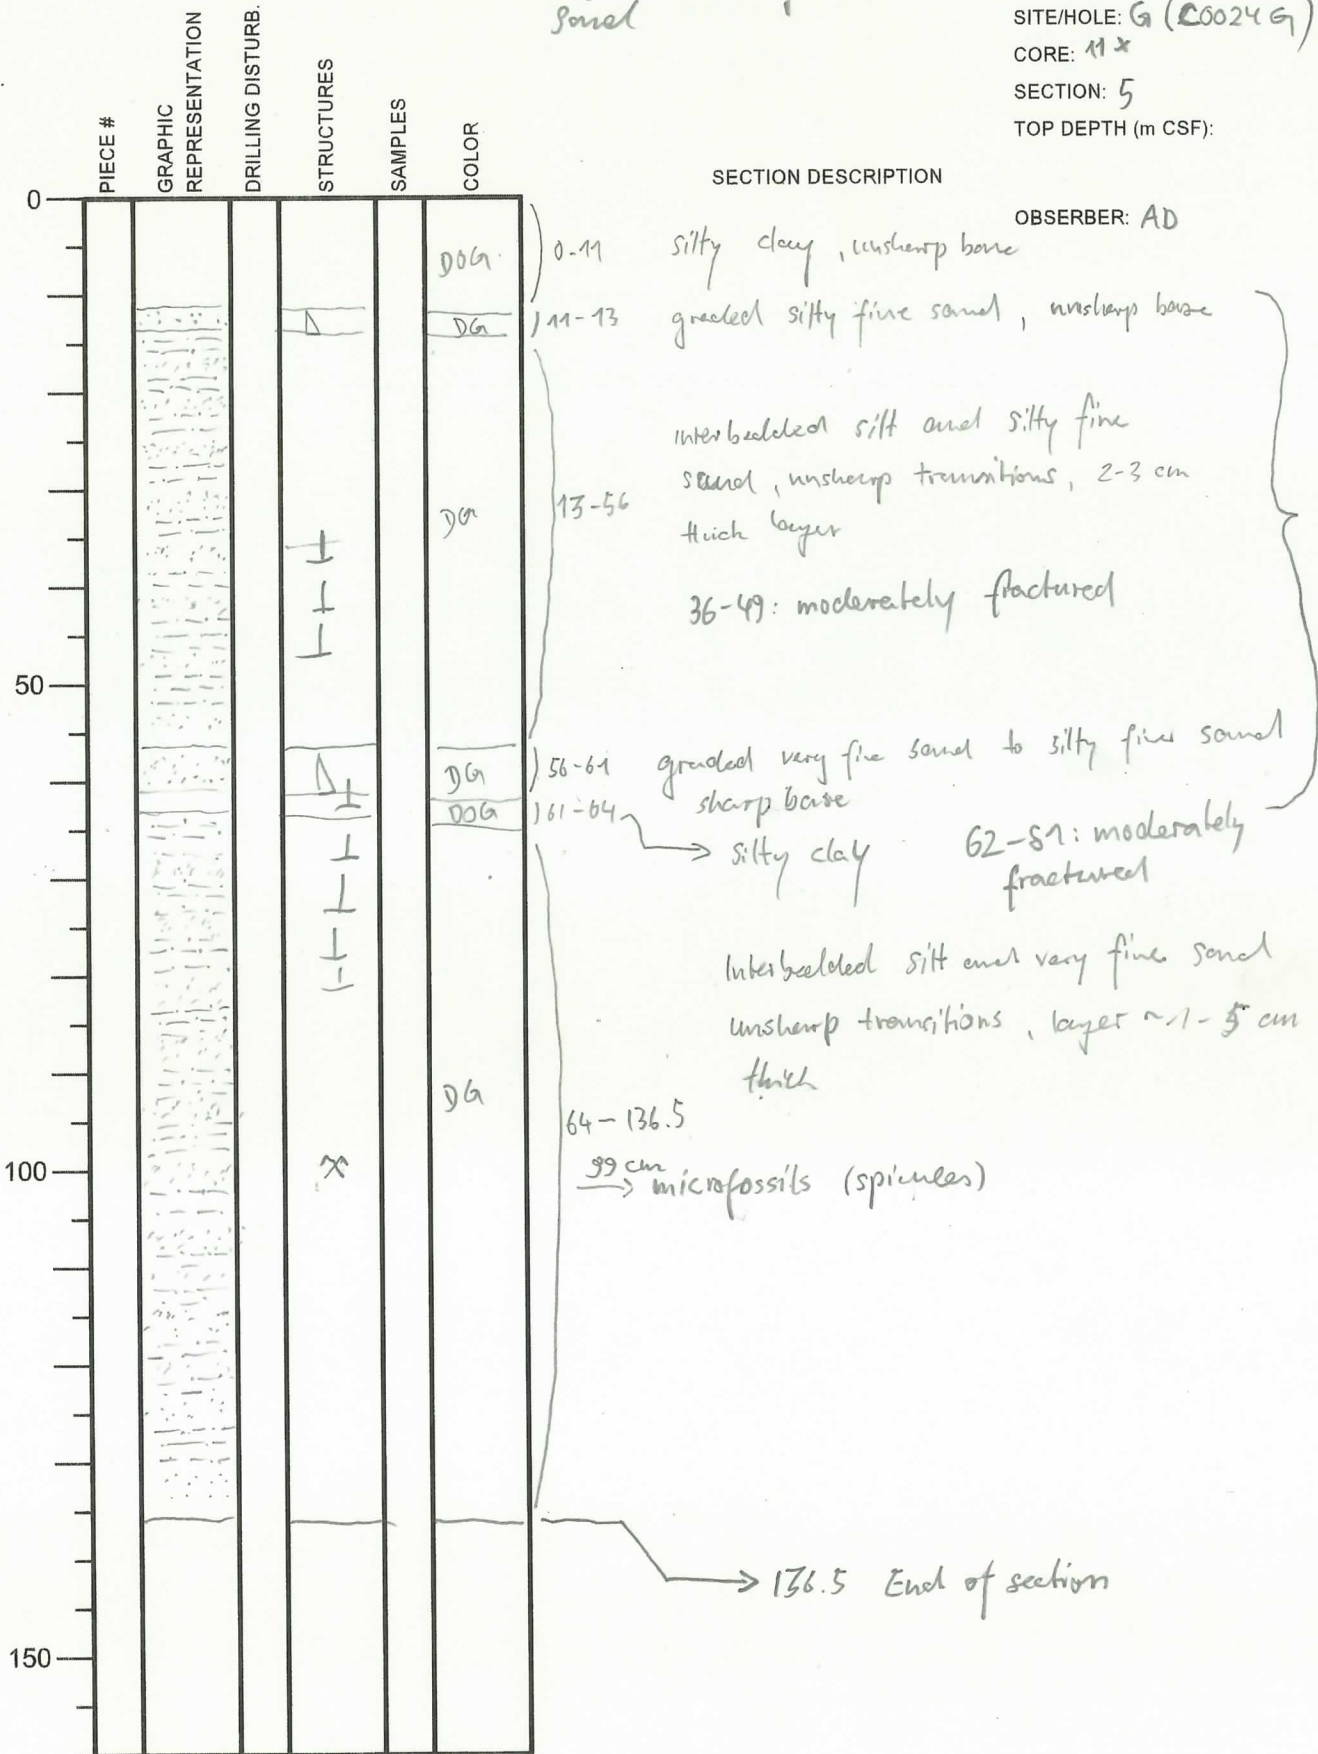 sand
SITE/HOLE: G (C0024G)
CORE: 11X
SECTION: 5
TOP DEPTH (m CSF):
PIECE #
GRAPHIC REPRESENTATION
DRILLING DISTURB.
STRUCTURES
SAMPLES
COLOR
SECTION DESCRIPTION
OBSERBER: AD
0
DOG 0-11 silty clay, unsharp base
DG 11-13 graded silty fine sand, unsharp base
Interbedded silt and silty fine
sand, unsharp transitions, 2-3 cm
DG 13-56
thick layer
36-49: moderately fractured
50
DG 56-61 graded very fine sand to silty fine sand
sharp base
DOG 61-64
silty clay
62-81: moderately
fractured
Interbedded silt and very fine sand
unsharp transitions, layer ~1-5 cm
thick
DG
64-136.5
100
99 cm
microfossils (spicules)
136.5 End of section
150